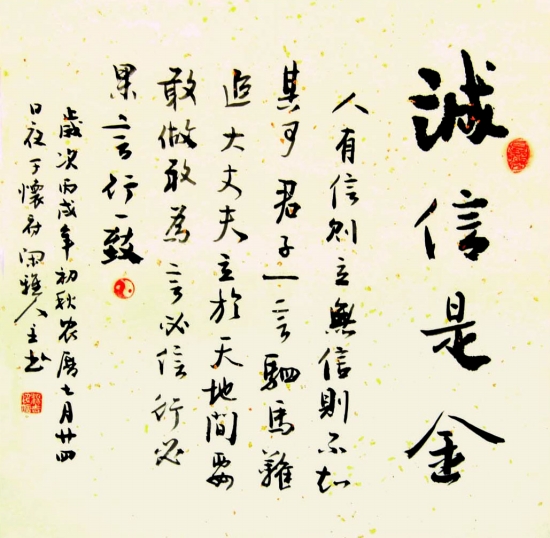 誠信是金
人有信則立無信則不知
其可君子一言駟馬難
追大丈夫立於天地間要
敢做敢為言必信行必
果言行一致
歲次丙戌年初秋农曆七月廿四
日夜于懷府闲雅人主书